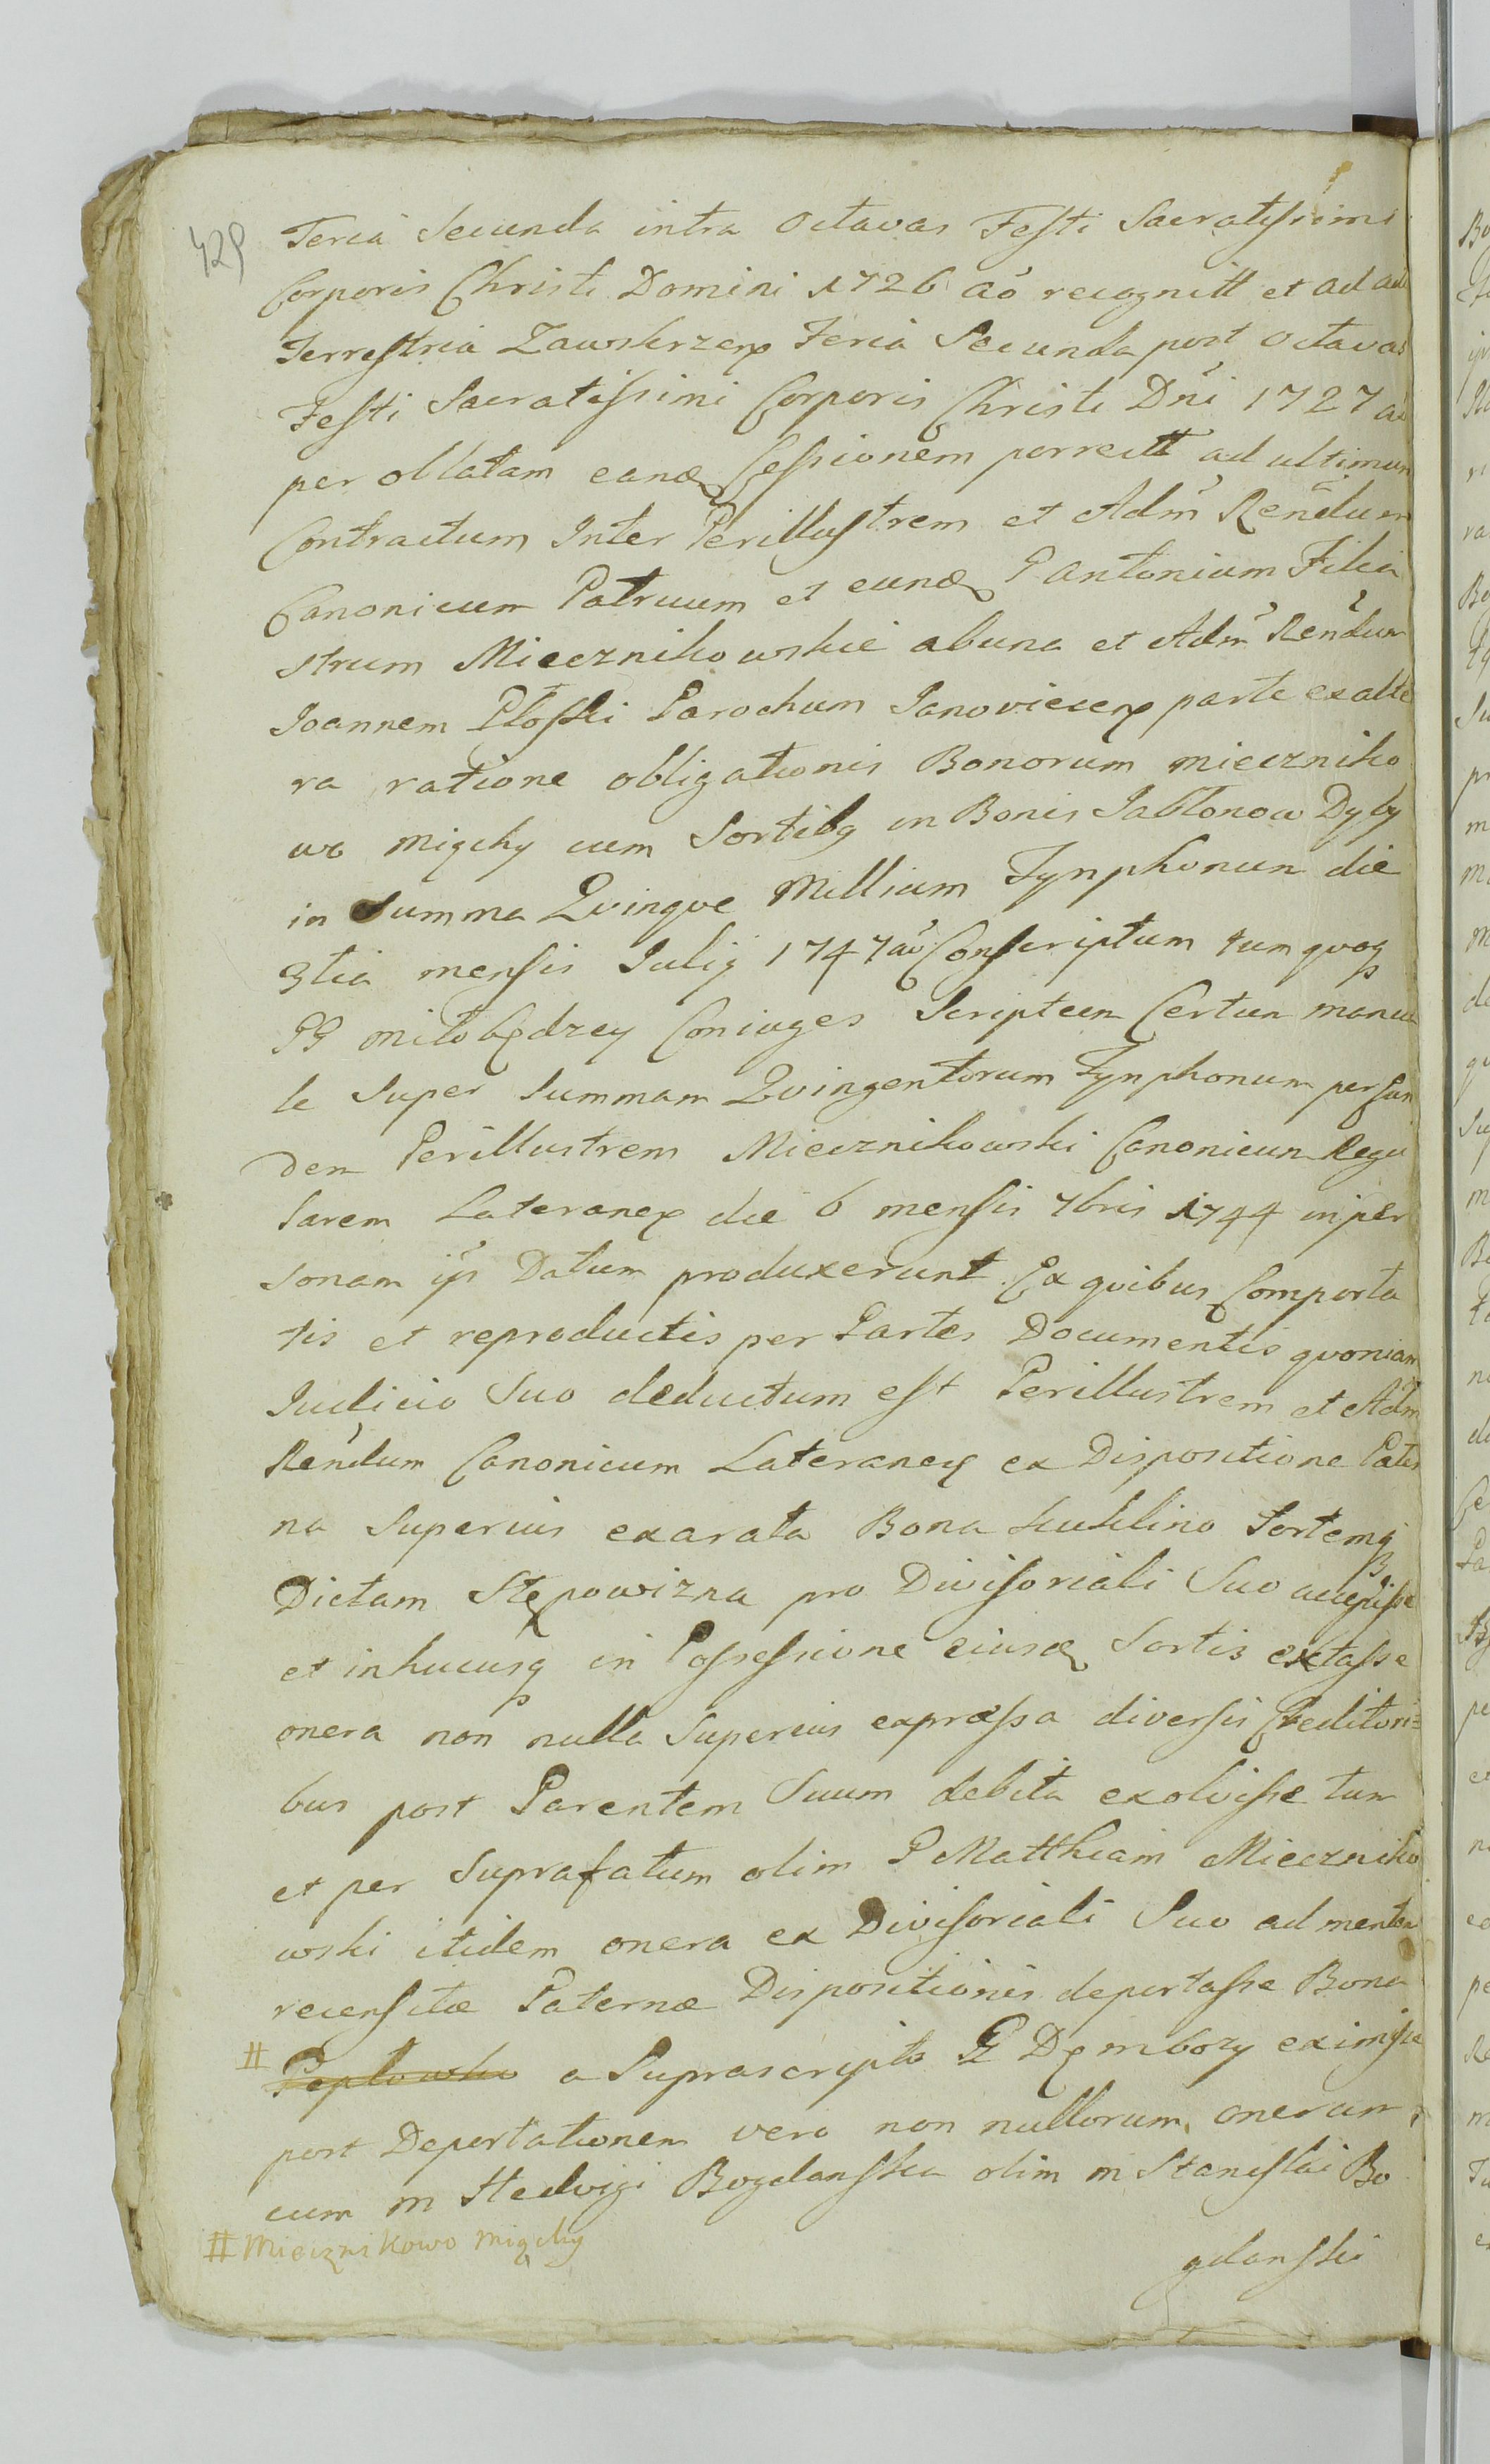 429
Feria Secunda intra Octavas Festi Sacratissimi
Corporis Christi Domini 1726 aõ recognitt et ad acta
Terrestria Zawskrzen Feria Secunda post Octavas
Festi Sacratissimi Corporis Christi Dni 1727 ao
per oblatam eandem Cessionem porrectt ad ultimum
Contractum Inter Perillustrem et Adm Rendum
Canonicum Patruum et eundem P Antonium Filia
strum Miecznikowskie ab una et Adm Rendum
Joannem Płoski Parochum Janoviecen parte ex alte
ra ratione obligationis Bonorum Mieczniko
wo Miąchy cum Sortibq in Bonis Jabłonow Dyby
in Summa Qvinqve Millium Tynphonum die
3tia mensis Julij 1747 aõ Conscriptum tum qvoq
PP Miłobędzcy Coniuges Scriptum Certum manua
le Super Summam Qvingentorum Tynphonum per eun
dem Perillustrem Miecznikowski Canonicum Regu
larem Lateranen die 6 mensis 7bris 1744 in per
sonam ips Datum produxerunt. Ex qvibus Comporta
tis et reproductis per Partes Documentis qvoniam
Judicio Suo deductum est Perillustrem et Adm
Rendum Canonicum Lateranen ex Dispositione Pater
na Superius exarata Bona Kuklino Sortemq
Dictam Stępowizna pro Divisoriali Suo accepisse
et in hucusq in Possessione eiusdem Sortis extasse
onera non nulla Superius expræssa diversis Creditori=
bus post Parentem Suum debita exolvisse tum
et per Suprafatum olim P Matthiam Mieczniko
wski itidem onera ex Divisoriali Suo ad mentem
recensitæ Paternæ Dispositionis deportasse Bona
# Pepłowsko a Suprascripto G Dęmbozy eximisse
post Deportationem vero non nullorum onerum
cum M Hedvigi Bogdanska olim M Stanislai Bo
gdanski
# Miecznikowo Miąchy